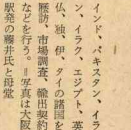 インド、パキスタン、イラ
ン、イラク、エジプト、英
仏、独、伊、タイの諸国を
歴訪、市場調査、輸出契約
などを行う。＝写真は大阪
駅発の藤井氏と母堂